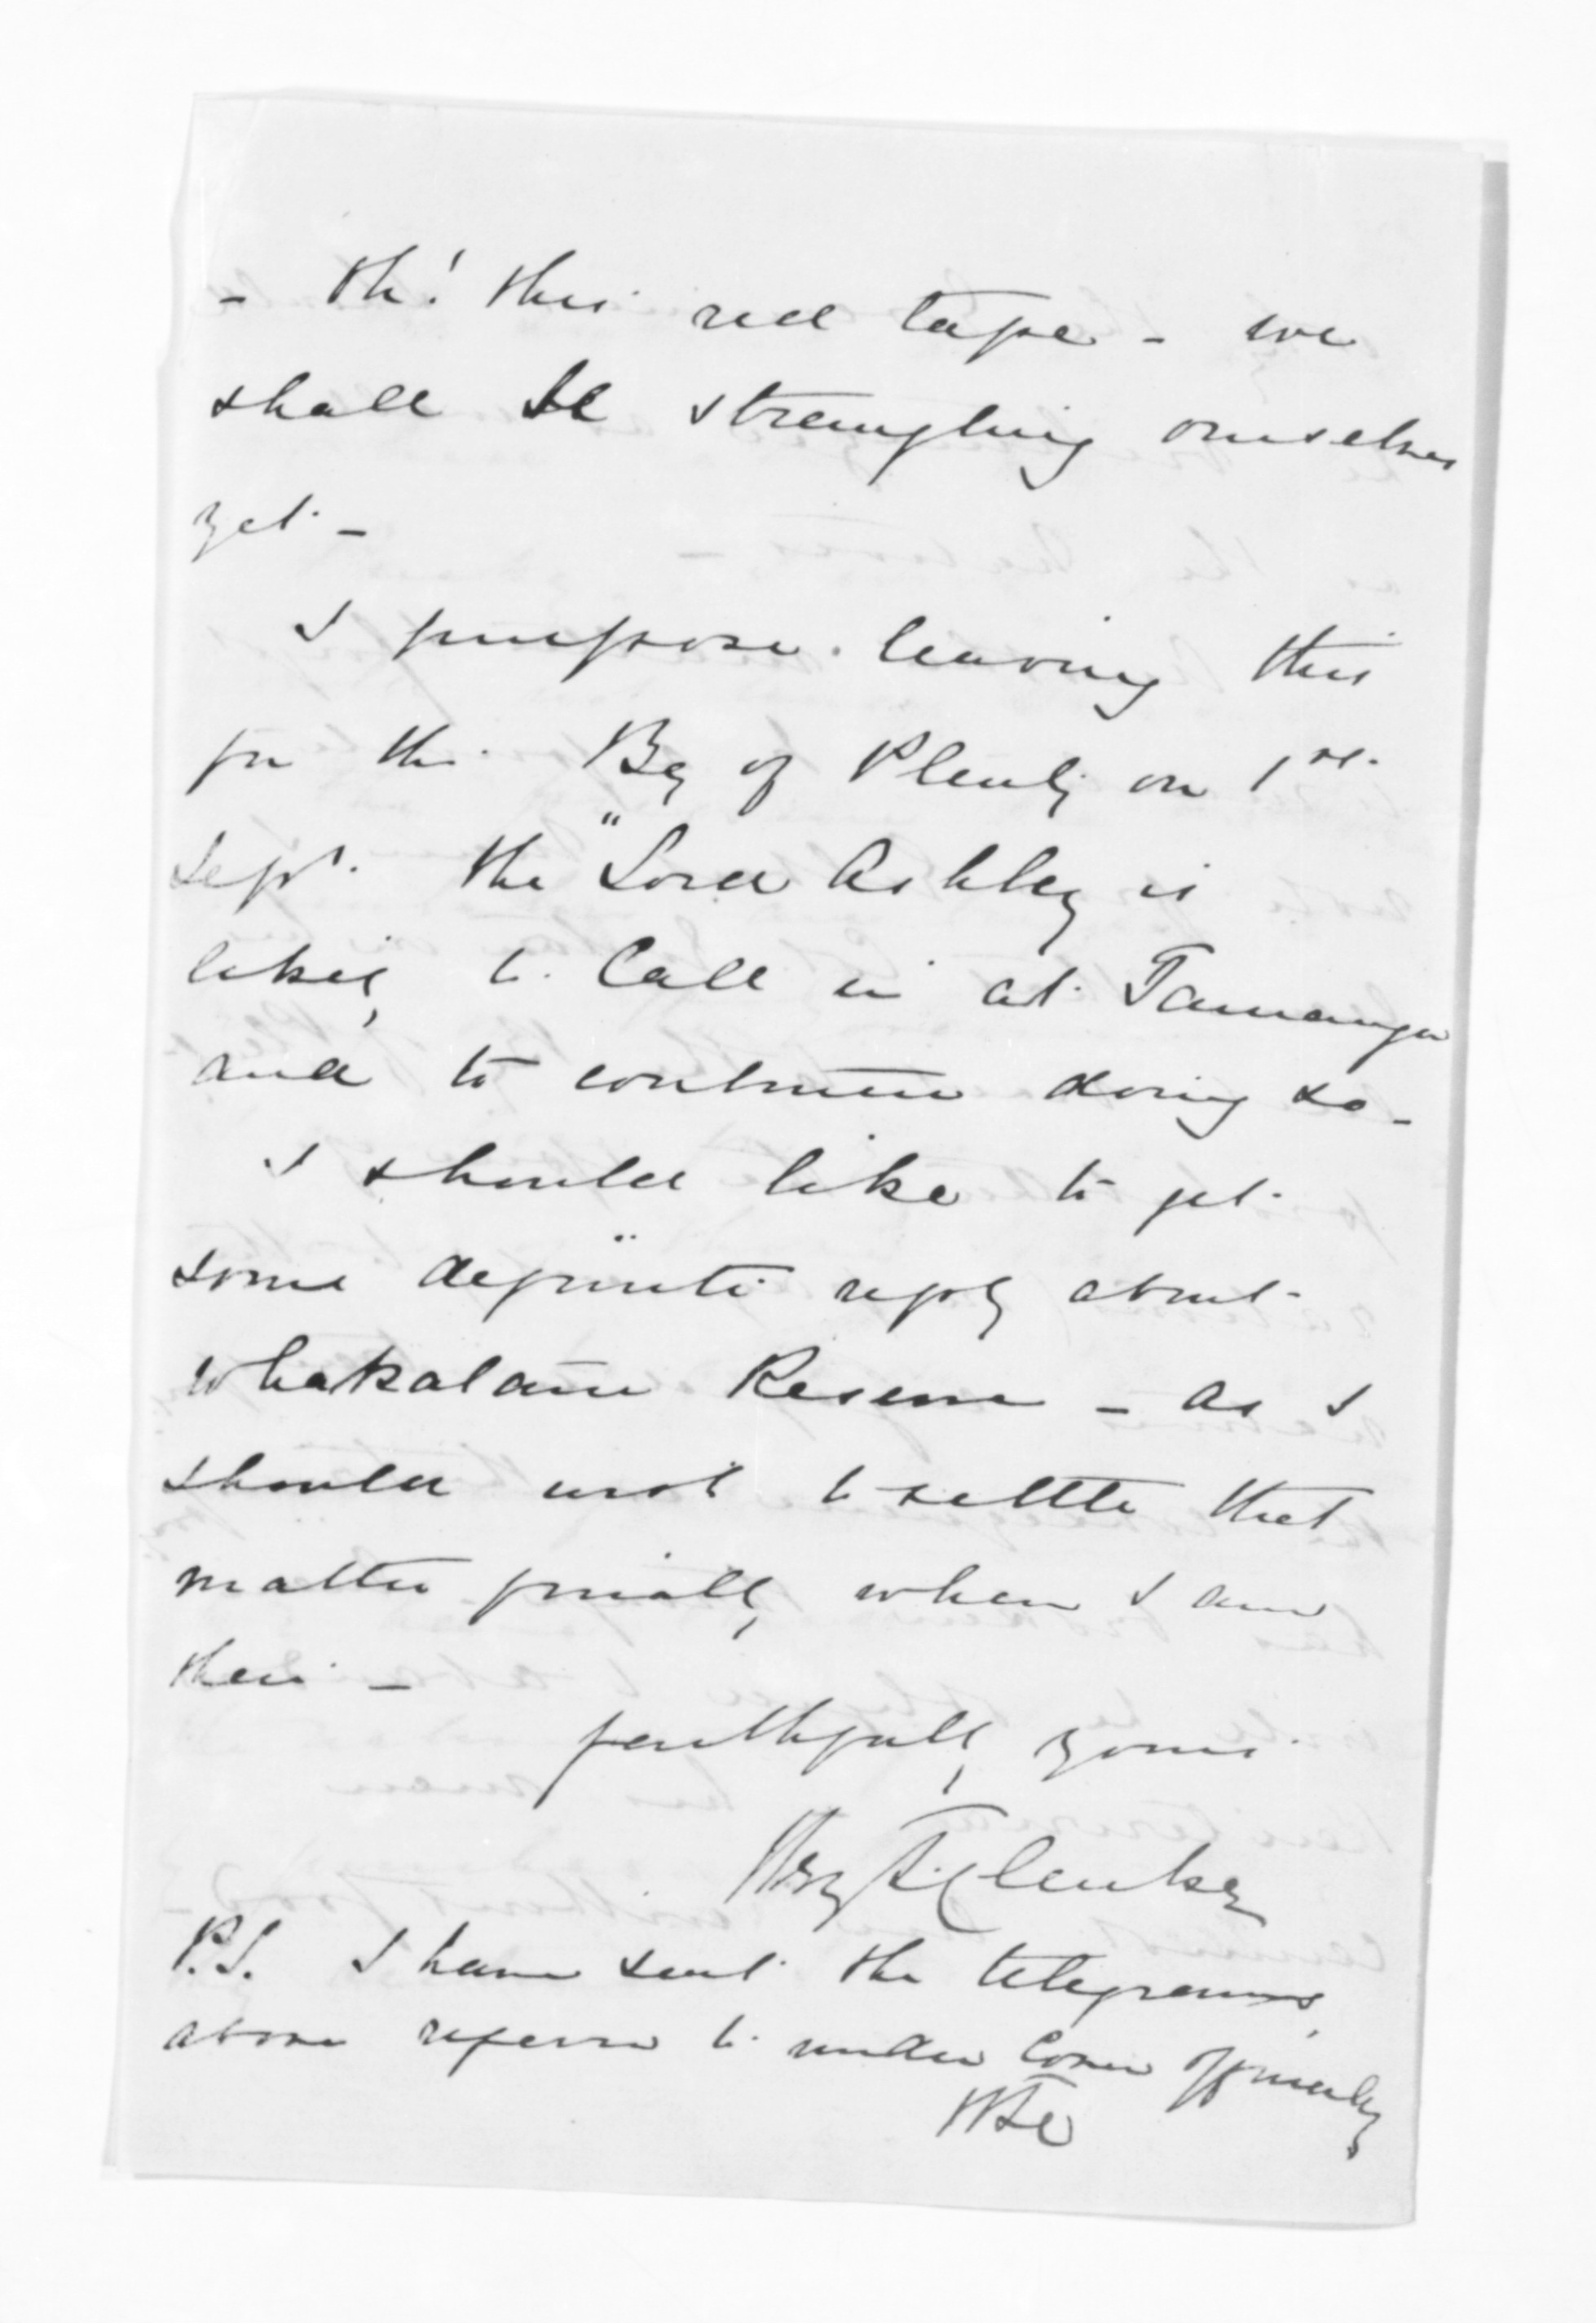 - Oh! this red tape - we
shall be strangling ourselves
yet -
I purpose leaving this
for the Bay of Plenty on 1st
Sept. the "Lord Ashley is
likely to call in at Tauranga
and to continue doing so -
I should like to get
some definite reply about
Whakatane Reserve - as I
should wish to settle that
matter finally when I am
there -
faithfully yours
Hry T. Clarke
P.S. I have sent the telegrams
above referred to under cover officially
HTC